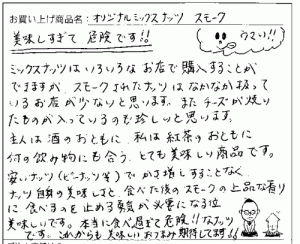 お買い上げ商品名：オリジナルミックスナッツ スモーク
美味しすぎて 危険です!!
うまい!!
ミックスナッツはいろいろなお店で購入することが
できますが、スモークされたナッツはなかなか扱って
いるお店が少ないと思います。またチーズが焼い
たものが入っているのも珍しいと思います。
主人は酒のおともに、私は紅茶のおともに
何の飲み物にも合う、とても美味しい商品です。
安いナッツ(ピーナッツ等)でかさ増しすることなく、
ナッツ自身の美味しさと、食べた後のスモークの上品な香り
に食べるのを止める勇気が必要になる位
美味しいです。本当に食べ過ぎて危険!!なナッツ
です。これからも美味しいおつまみ期待してます!!